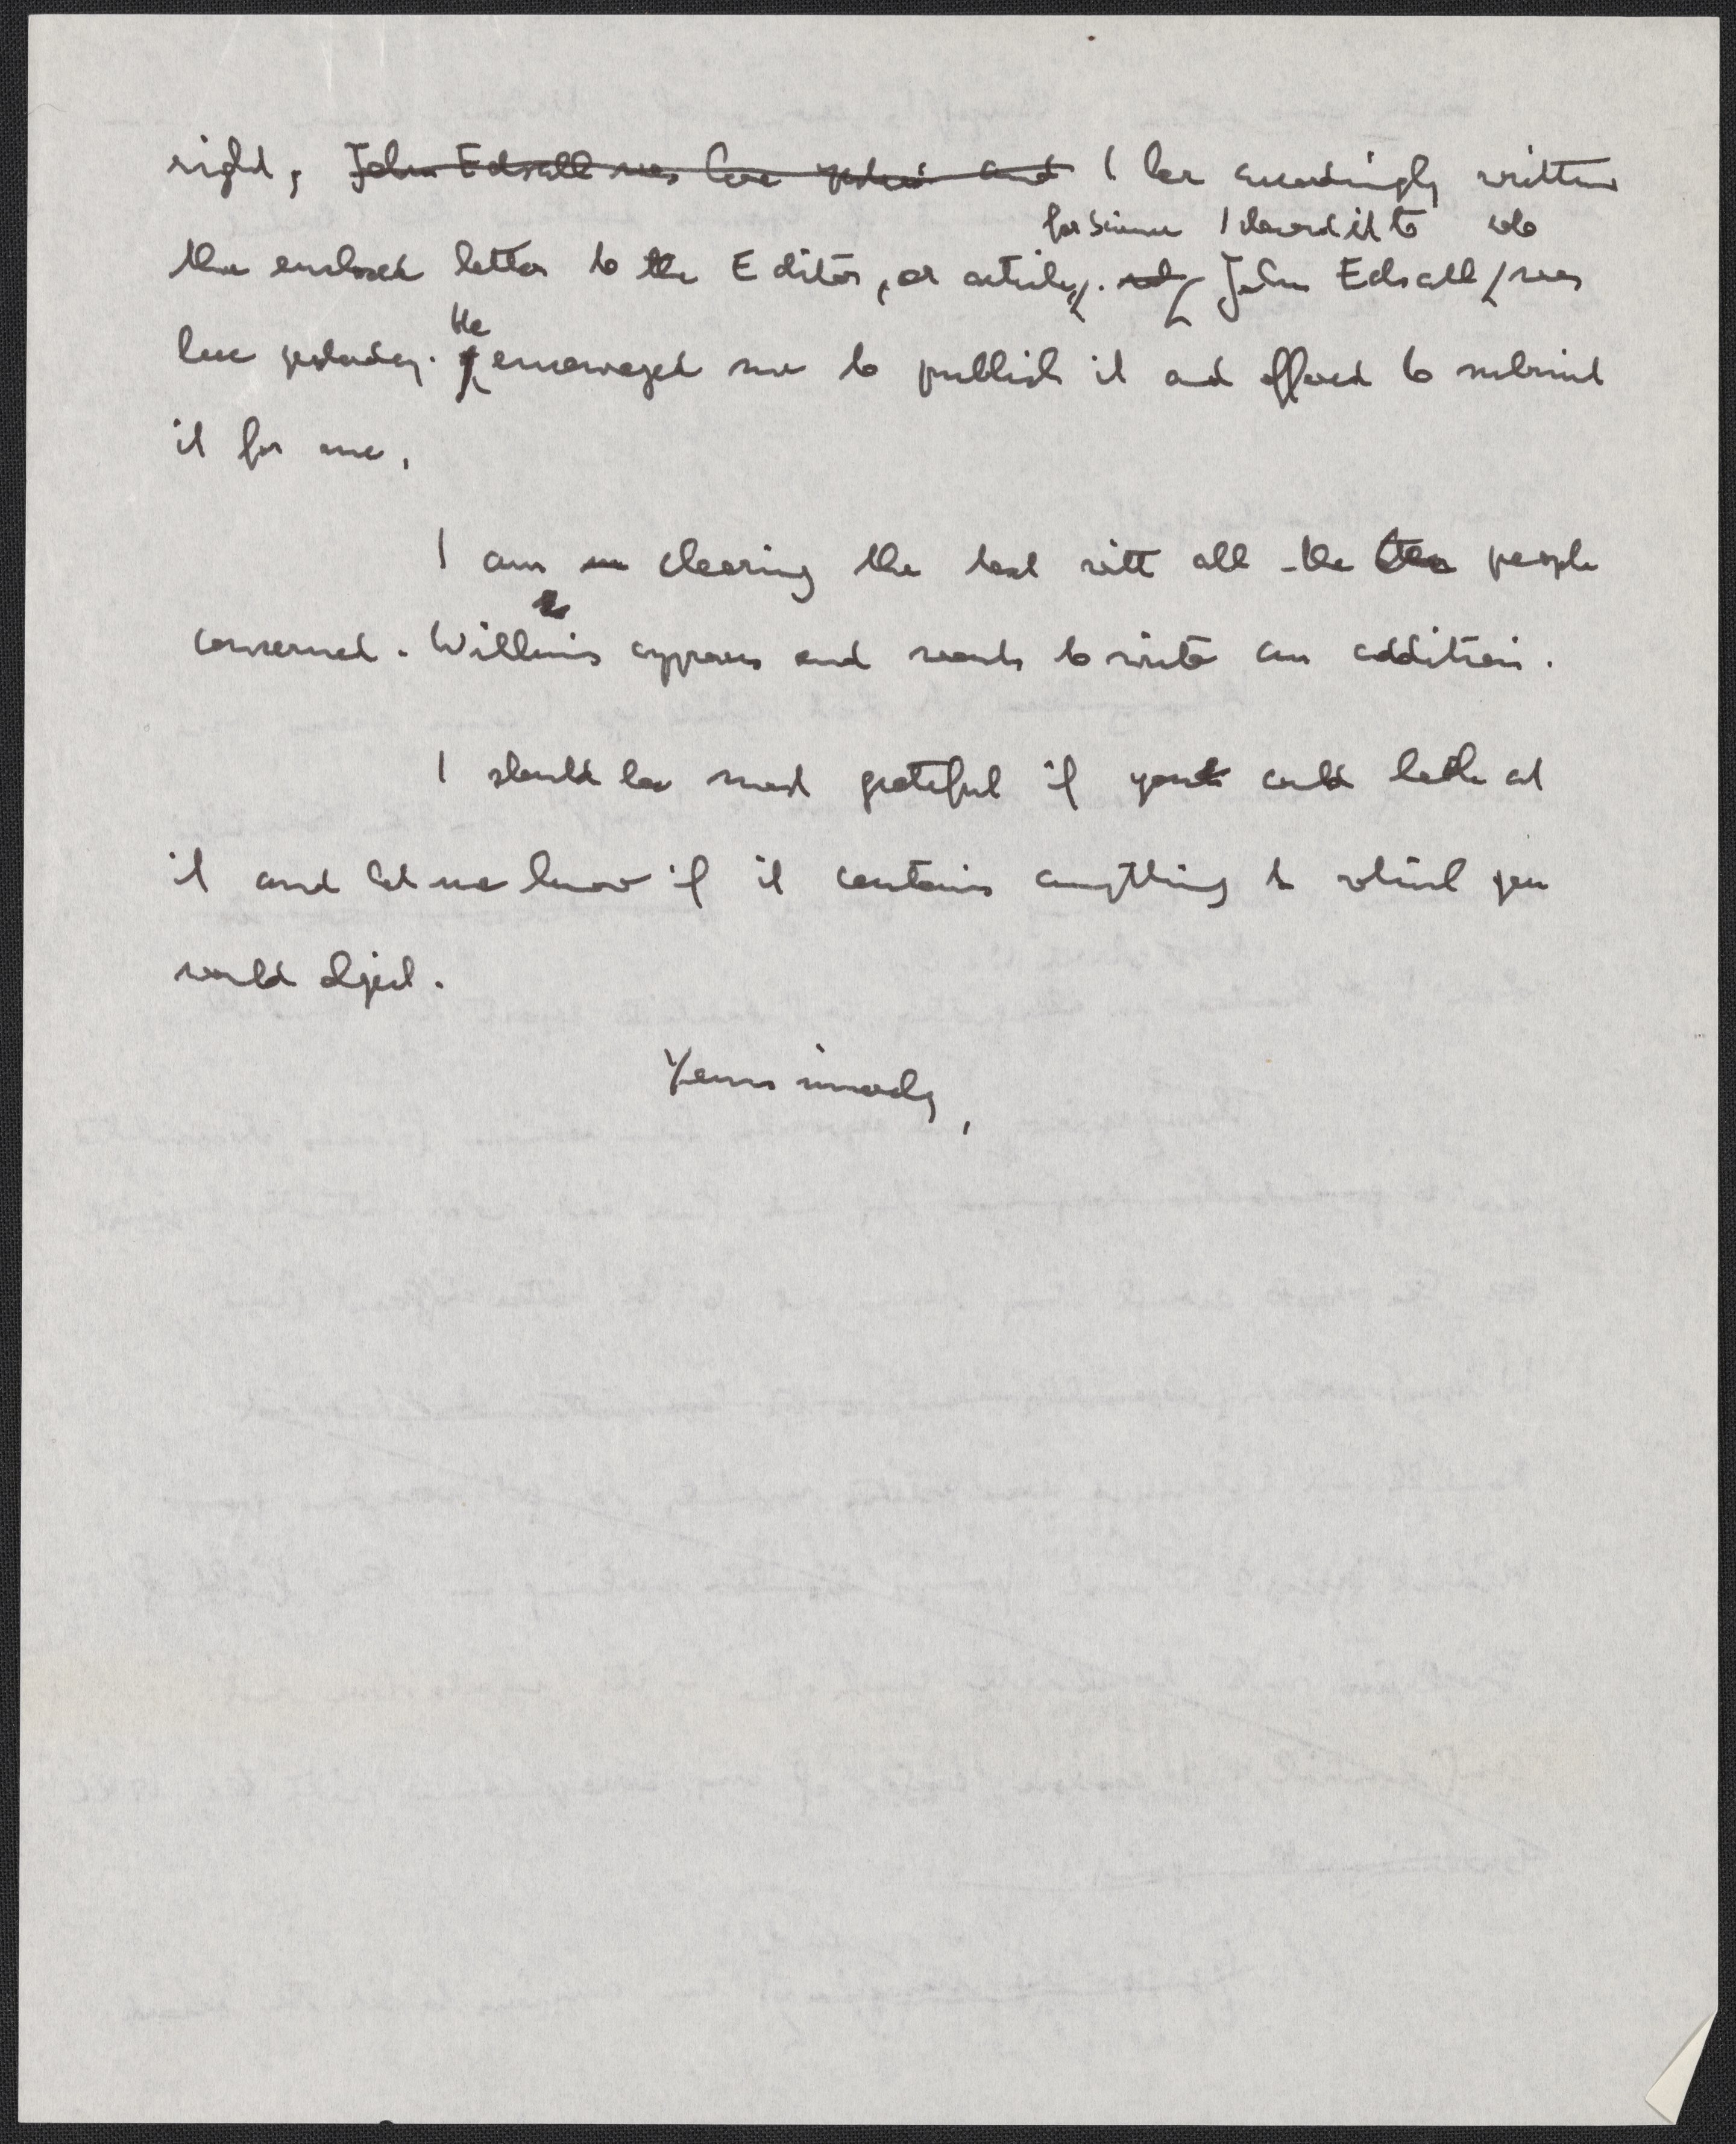 right, John Edsall was here yesterday and I have accordingly written
for Science I showed it to who
the enclosed letter to the Editor, or article. John Edsall was
He
here yesterday. encouraged me to publish it and offered to submit
it for me.
I am clearing the text with all the people
concerned. Wilkins approves and wants to write an addition.
I should be most grateful if you could look at
it and let me know if it contains anything to which you
would object.
Yours sincerely,